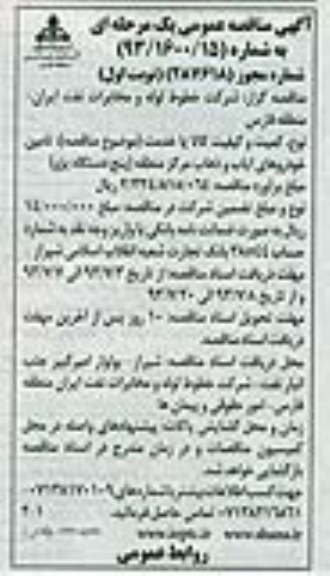 آگهی مناقصه عمومی یک مرحله ای
به شماره (۹۳/۱۶۰۰/۱۵)
شماره مجوز (۲۸۷۶۱۸) (نوبت اول)
مناقصه گزار: شرکت خطوط لوله و مخابرات نفت ایران-
منطقه فارس
نوع، کمیت و کیفیت کالا یا خدمت (موضوع مناقصه): تامین
خودروهای ایاب و ذهاب مرکز منطقه (پنج دستگاه
مبلغ برآورد مناقصه: ریال
نوع و مبلغ تضمین شرکت در مناقصه: مبلغ
ریال به صورت ضمانت نامه بانکی یا واریز وجه نقد به شماره
حساب بانک تجارت شعبه انقلاب اسلامی شیراز
مهلت دریافت اسناد مناقصه: از تاریخ ۹۳/۷/۳ الی ۹۳/۷/۷
و از تاریخ ۹۳/۷/۸ الی ۹۳/۷/۲۰
مهلت تحویل اسناد مناقصه: ۱۰ روز پس از آخرین مهلت
دریافت اسناد مناقصه.
محل دریافت اسناد مناقصه: شیراز - بولوار امیرکبیر جنب
انبار نفت - شرکت خطوط لوله و مخابرات نفت ایران منطقه
فارس - امور حقوقی و پیمان ها
زمان و محل گشایش پاکات: پیشنهادهای واصله در محل
کمیسیون مناقصات و در زمان مندرج در اسناد مناقصه
بازگشایی خواهد شد.
جهت کسب اطلاعات بیشتر با شماره های
تماس حاصل فرمائید.
www.shana.ir www.ioptc.ir
روابط عمومی